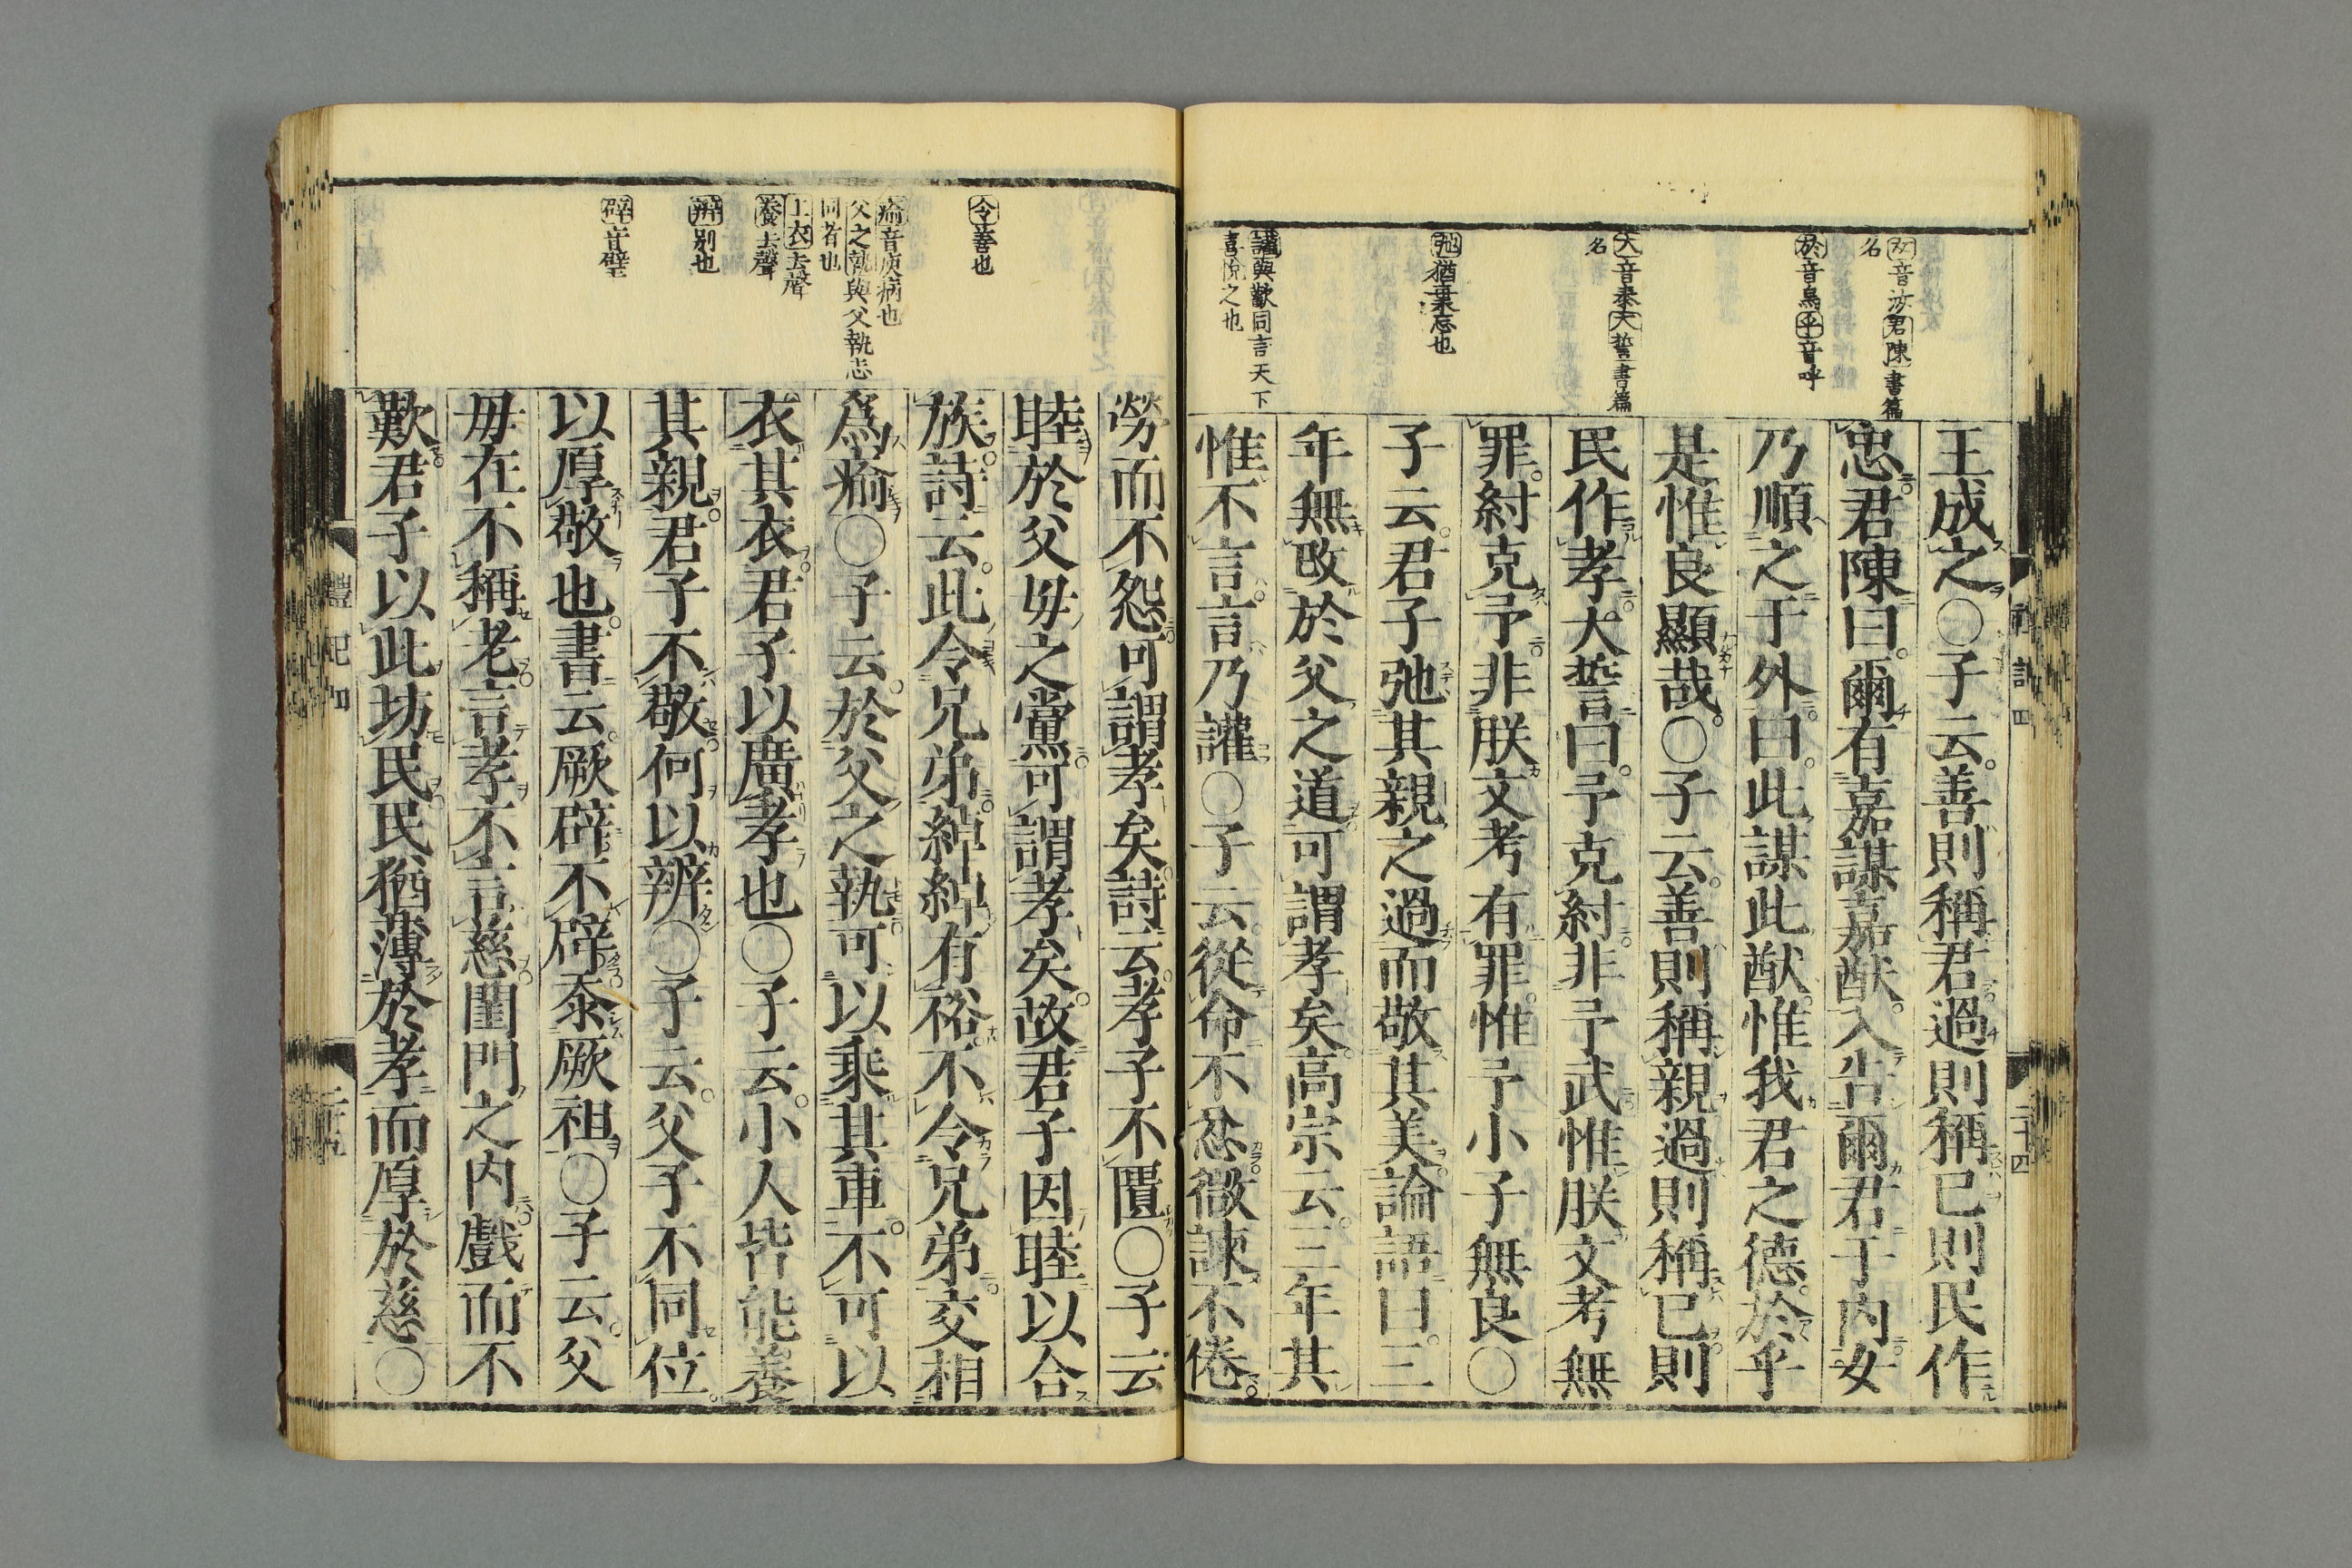 王成之○子云善則稱君過則稱己則民作
忠君陳曰爾有嘉謀嘉猷入告爾君于内女
乃順之于外曰此謀此猷惟我君之德於乎
是惟良顯哉○子云善則稱親過則稱己則
民作孝大誓曰予克紂非予武惟朕文考無
罪紂克予非朕文考有罪惟予小子無良○
子云君子弛其親之過而敬其美論語曰三
年無改於父之道可謂孝矣高宗云三年其
惟不言言乃讙○子云從命不忿微諫不倦
音汝君陳書篇
名
於音烏乎音呼
大音泰大誓書篇
名
弛猶棄忘也
讙與歡同言天下
喜悅之也
二十四
勞而不怨可謂孝矣詩云孝子不匱○子云
睦於父母之黨可謂孝矣故君子因睦以合
族詩云此令兄弟綽綽有裕不令兄弟交相
為瘉○子云於父之執可以乘其車不可以
衣其衣君子以廣孝也○子云小人皆能養
其親君子不敬何以辨○子云父子不同位
以厚敬也書云厥辟不辟忝厥祖○子云父
母在不稱老言孝不言慈閨門之内戲而不
歎君子以此坊民民猶薄於孝而厚於慈○
令善也
瘉音庾病也
父之執與父執志
同者也
上衣去聲
養去聲
辨別也
辟音璧
禮記四